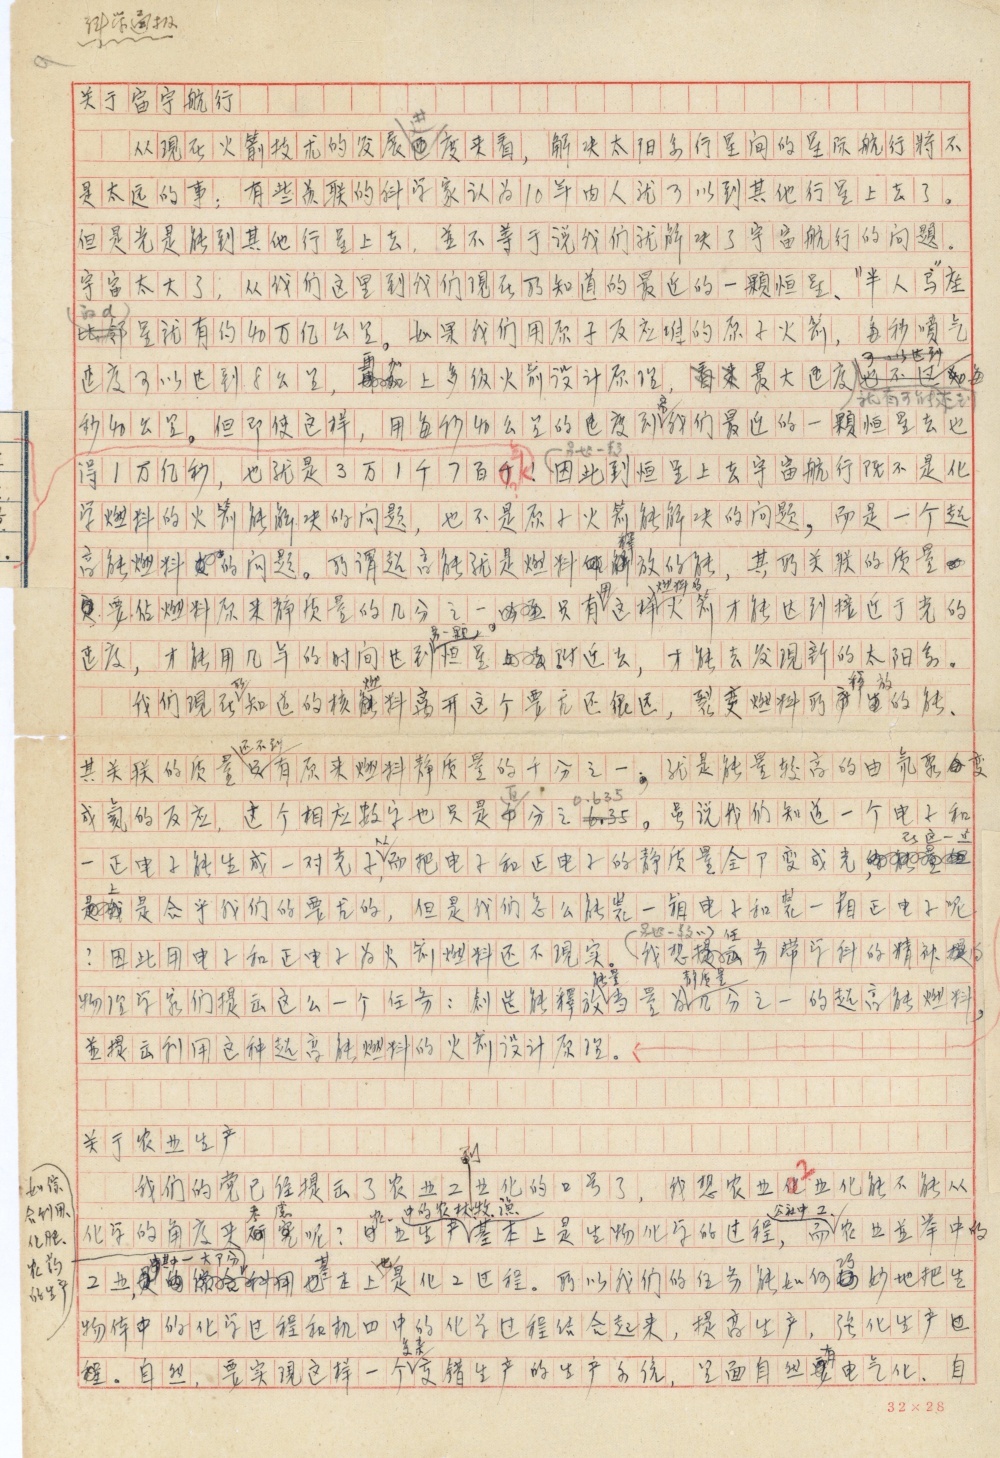 科学通报
关于宙宇航行
从现在火箭技术的发展速度来看，解决太阳系行星间的星际航行将不
是太远的事；有些苏联的科学家认为10年内人就可以到其他行星上去了。
但是光是能到其他行星上去，並不等于说我们就解决了宇宙航行的问题。
宇宙太大了；从我们这里到我们现在所知道的最近的一颗恒星、"半人马"座
的α
星就有约40万亿公里。如果我们用原子反应堆的原子火箭，每秒喷气
速度可以达到8公里，再加上多级火箭设计原理，最大速度
可以达到
就有可能达到每
秒40公里。但即使这样，用每秒40公里的速度到离我们最近的一颗恒星去也
得1万亿秒，也就是3万1千7百年！因此到恒星上去宇宙航行既不是化
另起一段
学燃料的火箭能解决的问题，也不是原子火箭能解决的问题，而是一个超
高能燃料的问题。所谓超高能就是燃料释放的能，其所关联的质量
要佔燃料原来静质量的几分之一。只有用这样燃料的火箭才能达到接近于光的
速度，才能用几年的时间达到另一颗恒星附近去，才能去发现新的太阳系。
我们现在所知道的核燃料离开这个要求还很远，裂变燃料所释放的能、
其关联的质量还不到原来燃料静质量的千分之一。就是能量较高的由氘聚变
成氦的反应，这个相应数字也只是百分之0.635。虽说我们知道一个电子和
一正电子能生成一对光子，从而把电子和正电子的静质量全下变成光，
在这一点
上是合乎我们的要求的，但是我们怎么能装一箱电子和装一箱正电子呢
？因此用电子和正电子为火箭燃料还不现实。我想以任务带学科的精神
另起一段
物理学家们提出这么一个任务：创造能释放能量当量为静质量几分之一的超高能燃料，
並提出利用这种超高能燃料的火箭设计原理。
关于农业生产
我们的党已经提出了农业工业化的口号了，我想农业工业化能不能从
化学的角度来考虑呢？农业生产中的农林牧渔基本上是生物化学的过程，公社中工农业並举中的
工业，其中一大部分基本上也是化工过程。所以我们的任务能如何巧妙地把生
如综
合利用、
化肥、
农药
的生产
物体中的化学过程和机四中的化学过程结合起来，提高生产，强化生产过
程。自然，要实现这样一个复杂交错生产的生产系统，里面自然有电气化、自
32×28